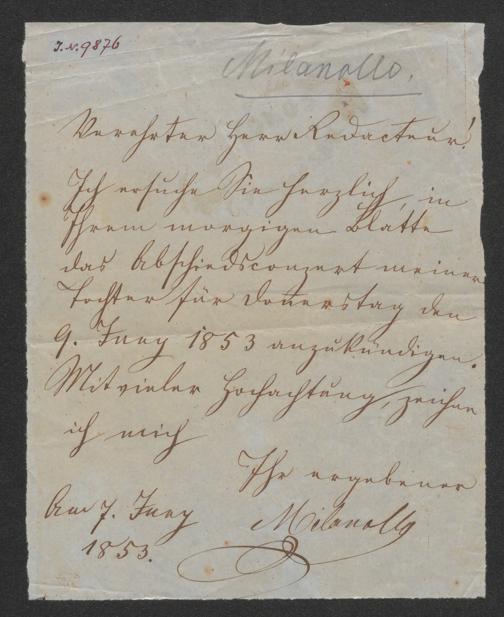 I.N. 9876
Milanollo.
Verehrter Herr Redacteur!
Ich ersuche Sie herzlich, in
Ihrem morgigen Blatte
das Abschiedsconzert meiner
Tochter für Donerstag den
9. Juny 1853 anzukündigen.
Mit vieler Hochachtung, zeichne
ich mich
Ihr ergebener
Milanollo
Am 7. Juny
1853.